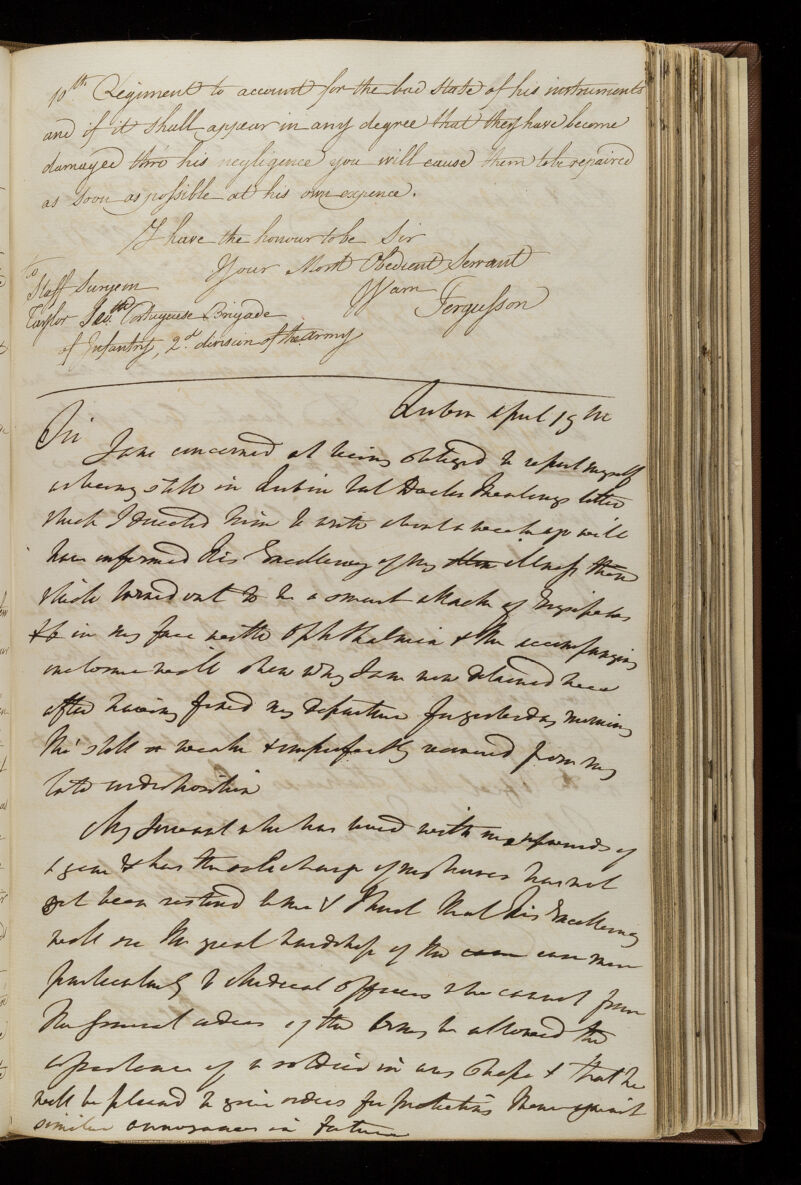 10th Regiment to account for the bad state of his instruments
and if it shall appear in any degree that they have become
damaged thro his negligence you will cause them to be repaired
as soon as possible at his own expence.
I have the honour to be Sir
Your Most Obedient Servant
Wam Fergusson
To
Staff Surgeon
Taylor Portuguese Brigade
of Infantry, 2d. division of the army
Lisbon April 19th
Sir
I am concerned at being obliged to report myself
as being still in Lisbon but Doctor letter
which I directed him to write about a week ago will
have informed His Excellency of my illness then
which turned out to be a smart attack of Erysipelas
in my face with Ophthalmia & the accompanying
will shew why I am now detained here
after having fixed my departure for yesterday morning
tho' still so weak & imperfectly recovered from my
late indisposition
My Servant who has lived with me upwards of
a year & has the sole charge of my horses has not
yet been restored to me & I trust that His Excellency
will see the great hardship of the case more
particularly to Medical officers who cannot from
the General orders of the army be allowed the
assistance of a soldier in any shape & that he
will be pleased to give orders for protecting them against
similar annoyances in future